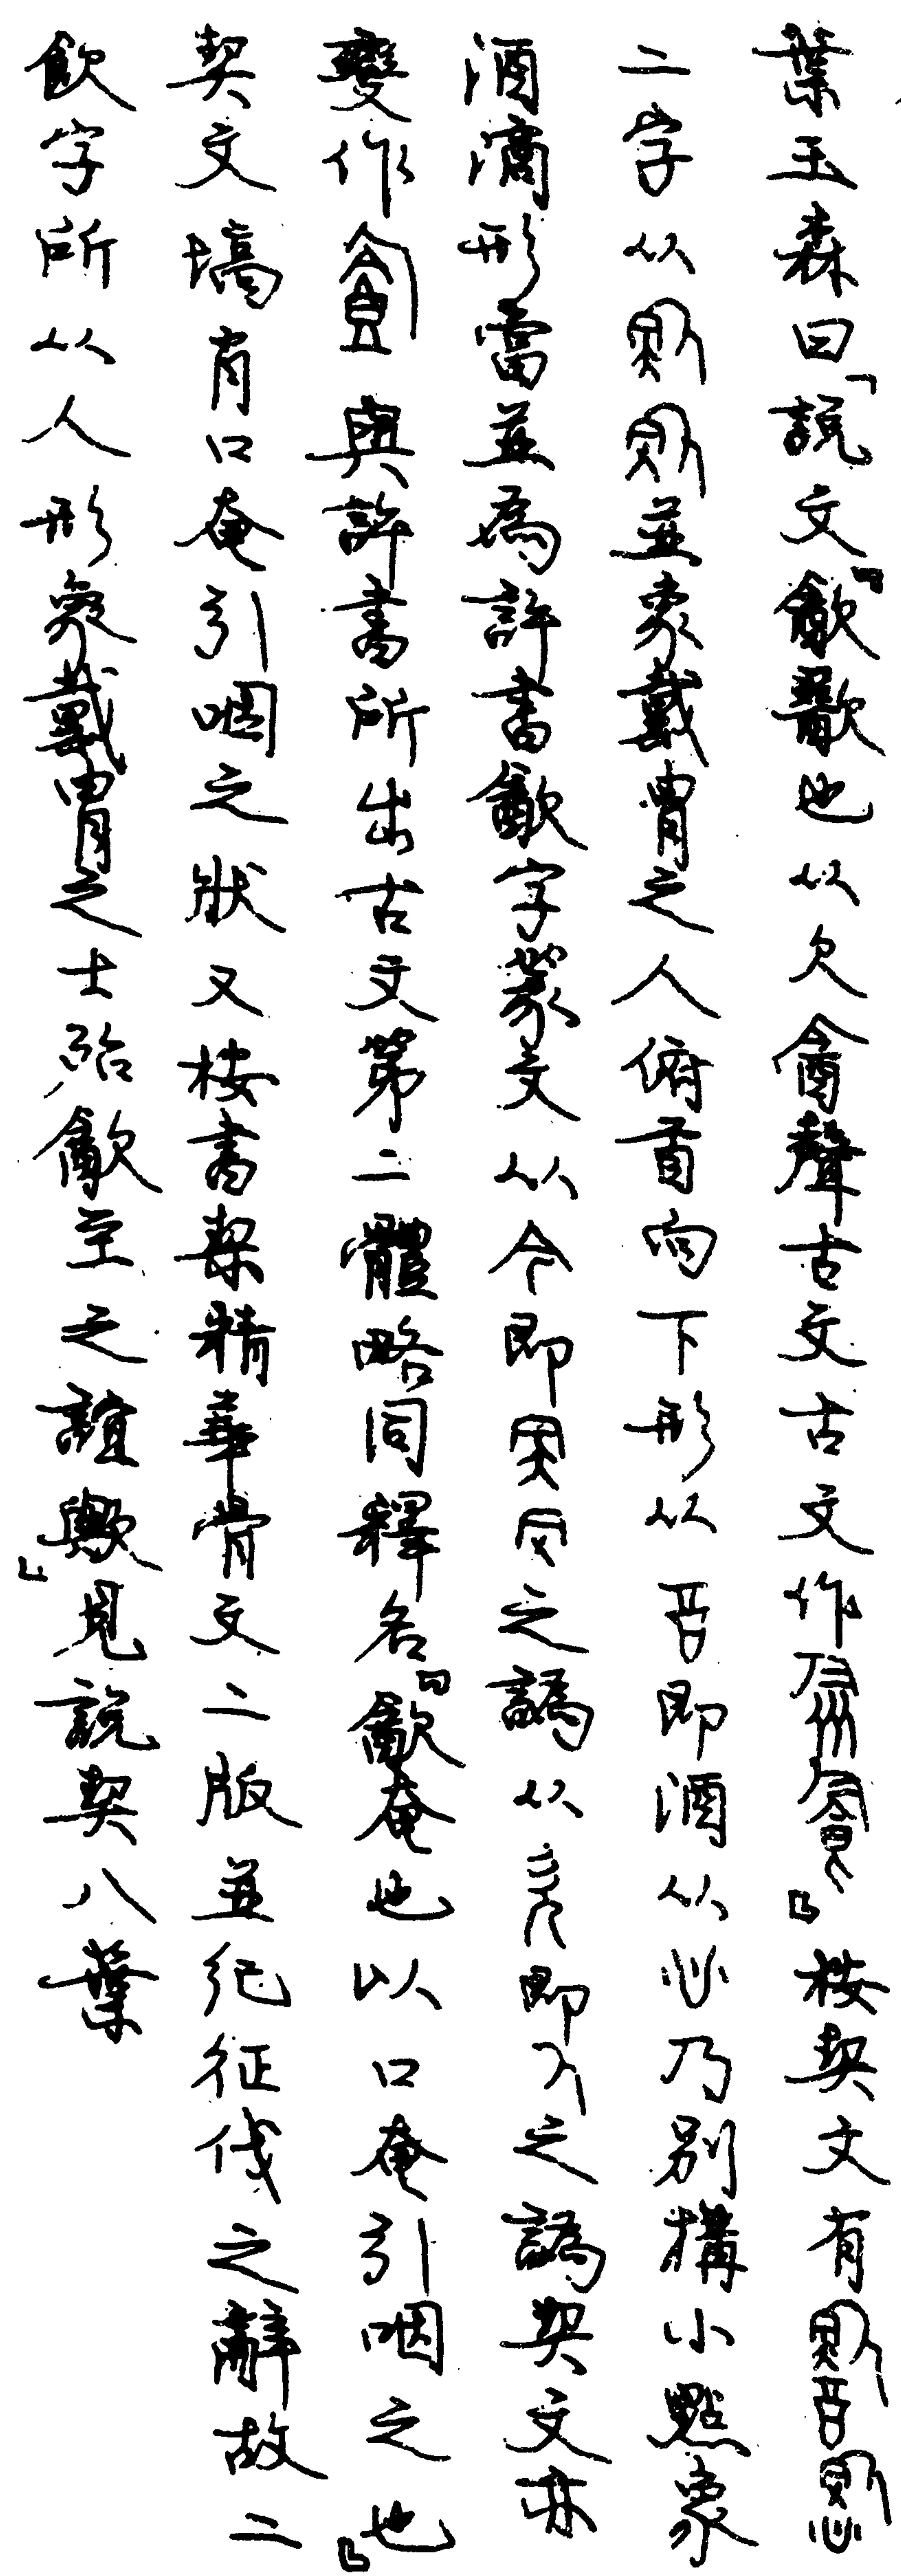 葉玉森曰「說文『㱃歠也从欠酓聲古文古文作』桉契文有
二字从並象戴冑之人俯首向下形从酉即酒从心乃別構小點象
酒滴形當並為許書㱃字篆文从今即之譌从即之譌契文亦
變作與許書所出古文第二體略同釋名『㱃奄也以口奄引咽之也』
契文塙肖口奄引咽之狀又桉書栔精華骨文二版並紀征伐之辭故二
飲字所从人形象戴冑之士殆㱃至之誼歟」見說契八葉